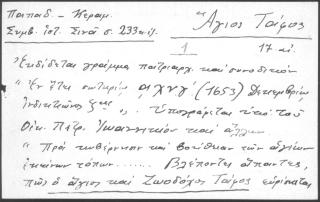 Παπαδ. – Κεραμ.
Ἅγιος Τάφος
Συμβ. ἱστ. Σινᾶ σ. 233 κ.ἑξ.
1
17 αἰ.
Ἐκδίδεται γράμμα πατριαρχ. καὶ συνοδικὸν
"Ἐν ἔτει σωτηρίῳ αχνγ (1653) Δεκεμβρίῳ
ἰνδικτιῶνος ζης". Ὑπογράφεται ὑπὸ τοῦ
Οἰκ. Πατρ. Ἰωαννικίου καὶ ἄλλων
"Πρὸς κυβέρνησιν καὶ βοήθειαν τῶν ἁγίων
ἐκείνων τόπων...... Βλέποντες ἅπαντες,
πῶς ὁ ἅγιος καὶ Ζωοδόχος Τάφος εὑρίσκεται